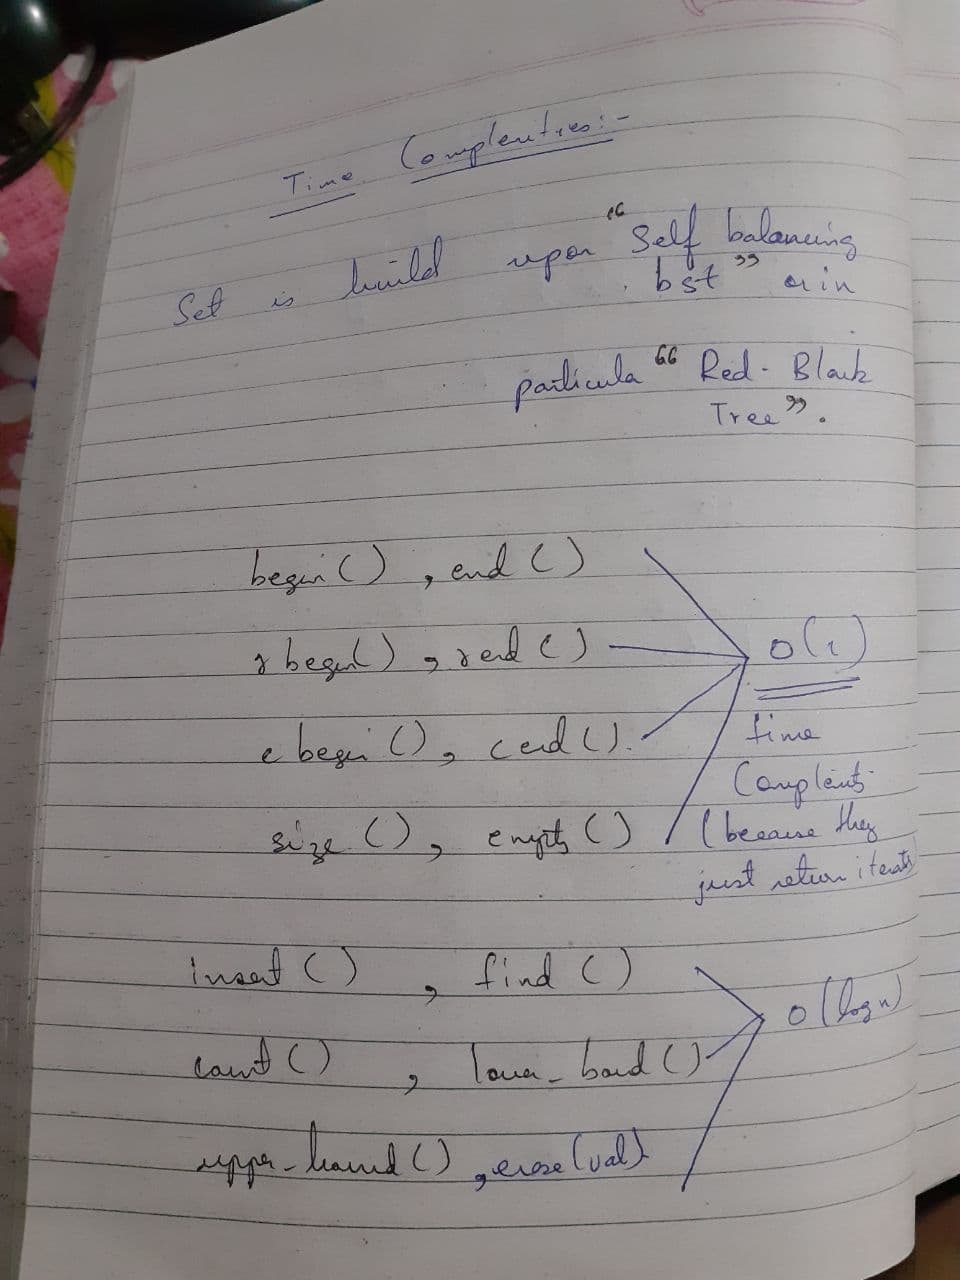 Time Complexities:-
Set is build upon "Self balancing
bst" or in
particula "Red-Black
Tree".
begin(), end()
rbegin(), rend()
cbegin(), cend().
size(), empty()
O(1)
time
Complexity
(because they
just return iterato
insert(), find()
count(), lower_bound()
upper_bound(), erase(val)
O(log n)